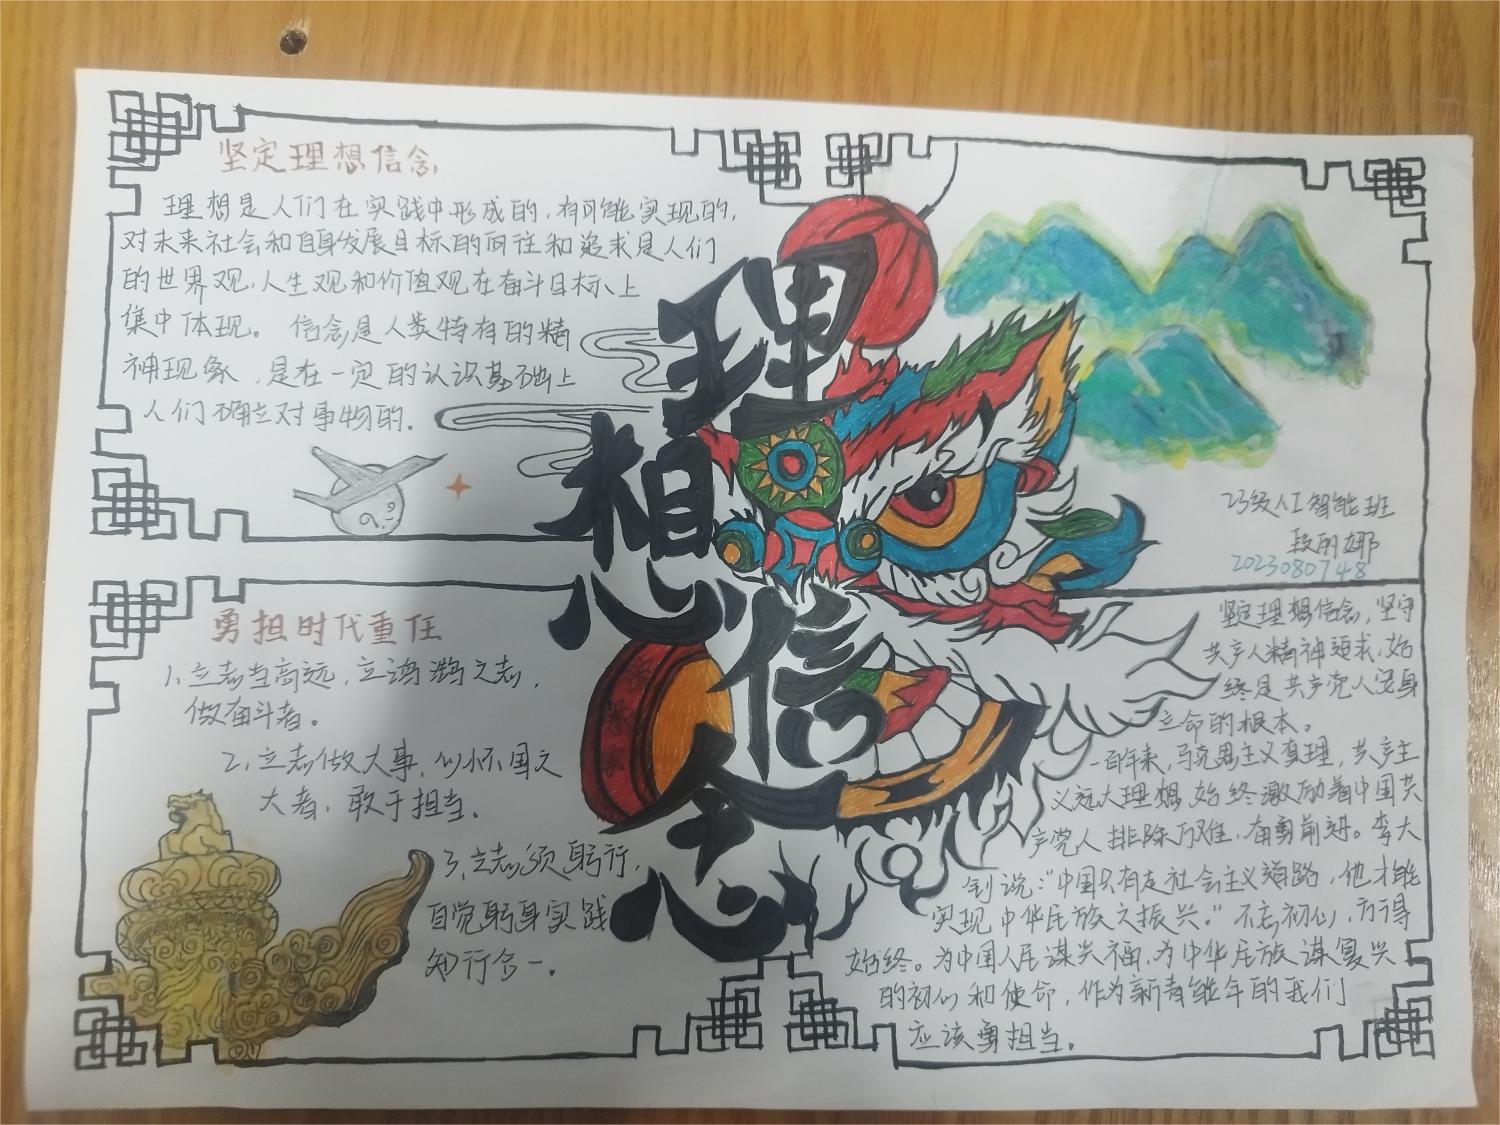 坚定理想信念
理想是人们在实践中形成的,有可能实现的,
对未来社会和自身发展目标的向往和追求是人们
的世界观,人生观和价值观在奋斗目标上
集中体现。信念是人类特有的精
神现象,是在一定的认识基础上
人们确立对事物的.
理想信念
23级人工智能班
段丽娜
2023080748
勇担时代重任
1、立志当高远,立鸿鹄之志,
做奋斗者。
2、立志做大事,心怀国之
大者,敢于担当.
3、立志须躬行,
自觉躬身实践
知行合一.
坚定理想信念,坚守
共产人精神追求,始
终是共产党人安身
立命的根本。
一百年来,马克思主义真理,共产主
义远大理想始终激励着中国共
产党人排除万难,奋勇前进。李大
钊说:“中国只有走社会主义道路,他才能
实现中华民族之振兴.”不忘初心,方得
始终。为中国人民谋幸福,为中华民族谋复兴
的初心和使命,作为新青年的我们
应该勇担当.